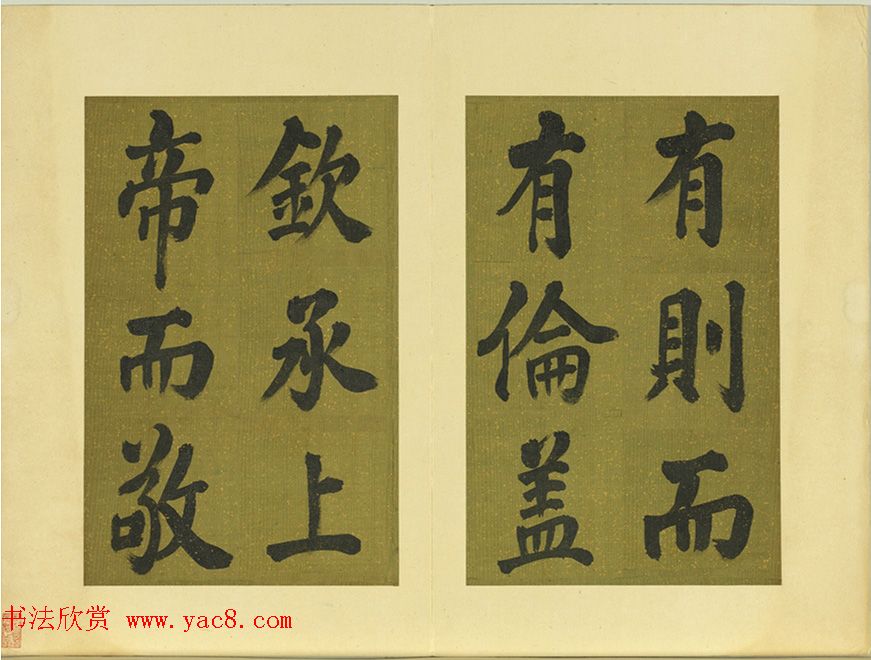 有則而
有倫盖
欽承上
帝而敬
书法欣赏 www.yac8.com